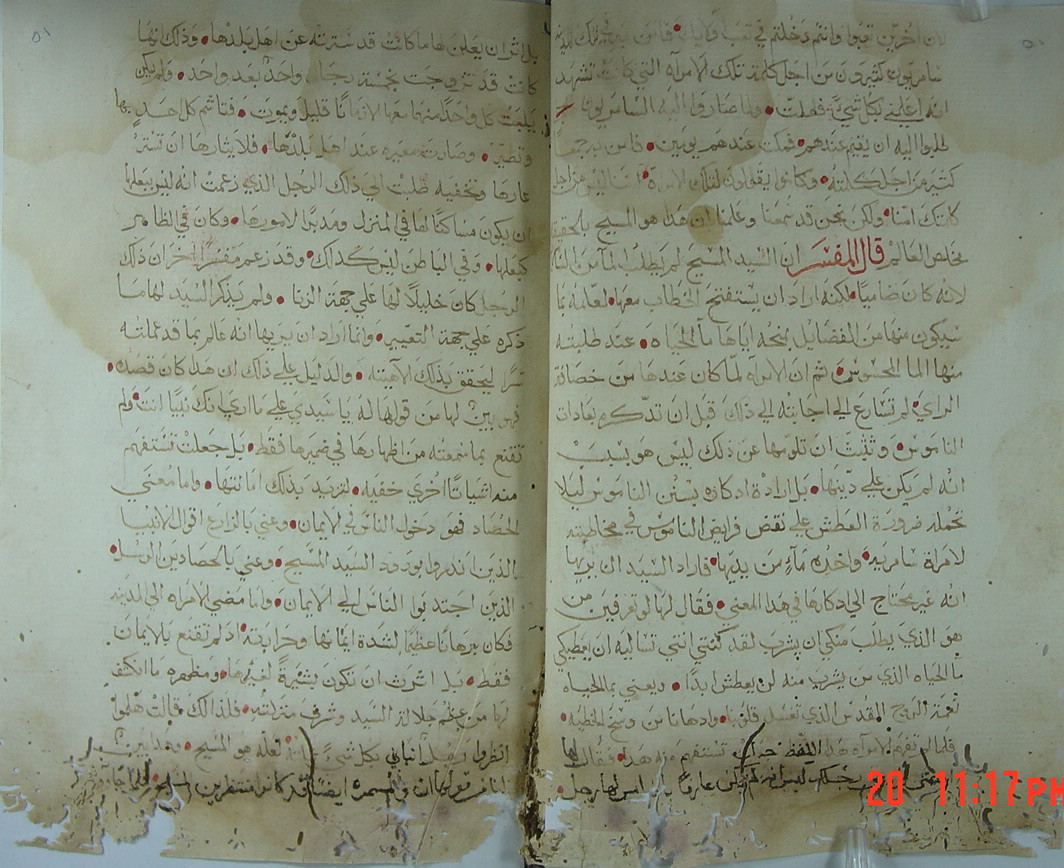 لان اخرين تعبوا وانتم دخلتم في تعب اوليك
سامريون كثيرون من اجل كلمة تلك الامراه التي كانت تشهد
انه اعلمني بكل شيء فعلت ولما صاروا اليه السامريون
طلبوا اليه ان يقيم عندهم فمكث عندهم يومين فامن به جمعا
كثير من اجل كلمته وكانوا يقولون لتلك الامراة اننا ليس من اجل
كلامك امنا ولكن نحن قد سمعنا وعلمنا ان هذا هو المسيح بالحقيقة
مخلص العالم قال المفسر ان السيد المسيح لم يطلب الما من
لانه كان ضاميا لكنه اراد ان يستفتح الخطاب معها لعلمه بما
سيكون منها من الفضايل بمنحه اياها ما الحياه عند طلبته
منها الما المحسوس ثم ان الامراه لما كان عندها من حصافة
الراي لم تسارع الي اجابته الي ذلك قبل ان تذكره بعادات
الناموس وتثبت ان تلومها عن ذلك ليس هو بسبب
انه لم يكن علي دينها بل ارادة ادكاره بسنن الناموس ليلا
تحمله ضرورة العطش علي نقض فرايض الناموس في مخاطبته
لامراة سامريه واخذه ماء من يديها فاراد السيد ان يريها
انه غير محتاج الي ادكارها في هذا المعني فقال لها لو تعرفين من
هو الذي يطلب منكي ان يشرب لقد كنتي انتي تساليه ان يعطيكي
ما الحياه الذي من يشرب منه لن يعطش ابدا ويعني بما الحياه
نعمة الروح المقدس الذي تغسل قلوبنا وادهاننا من وسخ الخطيه
فلما لم تفهم الامراه هذا اللفظ تستفهم هذا فقال لها
ليس لها رجل
بل اثر ان يعلن لها ما كانت قد سترته عن اهل بلدها وذلك انها
كانت قد تزوجت بخمسة رجال واحد بعد واحد ولم يكن
يلبث كل واحد منهما معها الا زمانا قليل ويموت فتاتم كل احد بها
وتطير وصارت معيره عند اهل بلدها فلايثارها ان تستر
عارها وتخفيه طلبت الي ذلك الرجل الذي زعمت انه ليس ببعلها
ان يكون مساكنا لها في المنزل ومدبرا لامورها وكان في الظاهر
كبعلها وفي الباطن ليس كذاك وقد زعم مفسرا اخر ان ذلك
الرجل كان خليلا لها علي جهة الزنا ولم يذكر السيد لها ما
ذكره علي جهة التعيير وانما اراد ان يريها انه عالم بما قد عملته
سرا ليحقق بذلك الاهيته والدليل علي ذلك ان هذا كان قصده
فهو بين لها من قولها له يا سيدي علي ما اري انك نبيا انت ولم
تقنع بما سمعته من اظهارها في ضميرها فقط بل جعلت تستفهم
منه اشياتا اخري خفيه لتزيد بذلك امانتها واما معني
الحصاد فهو دخول الناس في الايمان وعني بالزارع اقوال الانبيا
الذين انذروا بورود السيد المسيح وعني بالحصادين الرسل
الذين اجتذبوا الناس الي الايمان واما مضي الامراه الي المدينه
فكان برهانا عظيما لشدة ايمانها وحرارته اذ لم تقنع بالايمان
فقط بل اثرت ان تكون بشيرة لغيرها ومظهره ما انكشف
لها من عظم جلالة السيد وشرف منزلته فلذالك قالت هلموا
انظروا رجلا انباني بكل شيء لعله هو المسيح
قد كانوا منتظرين
20 11:17PM